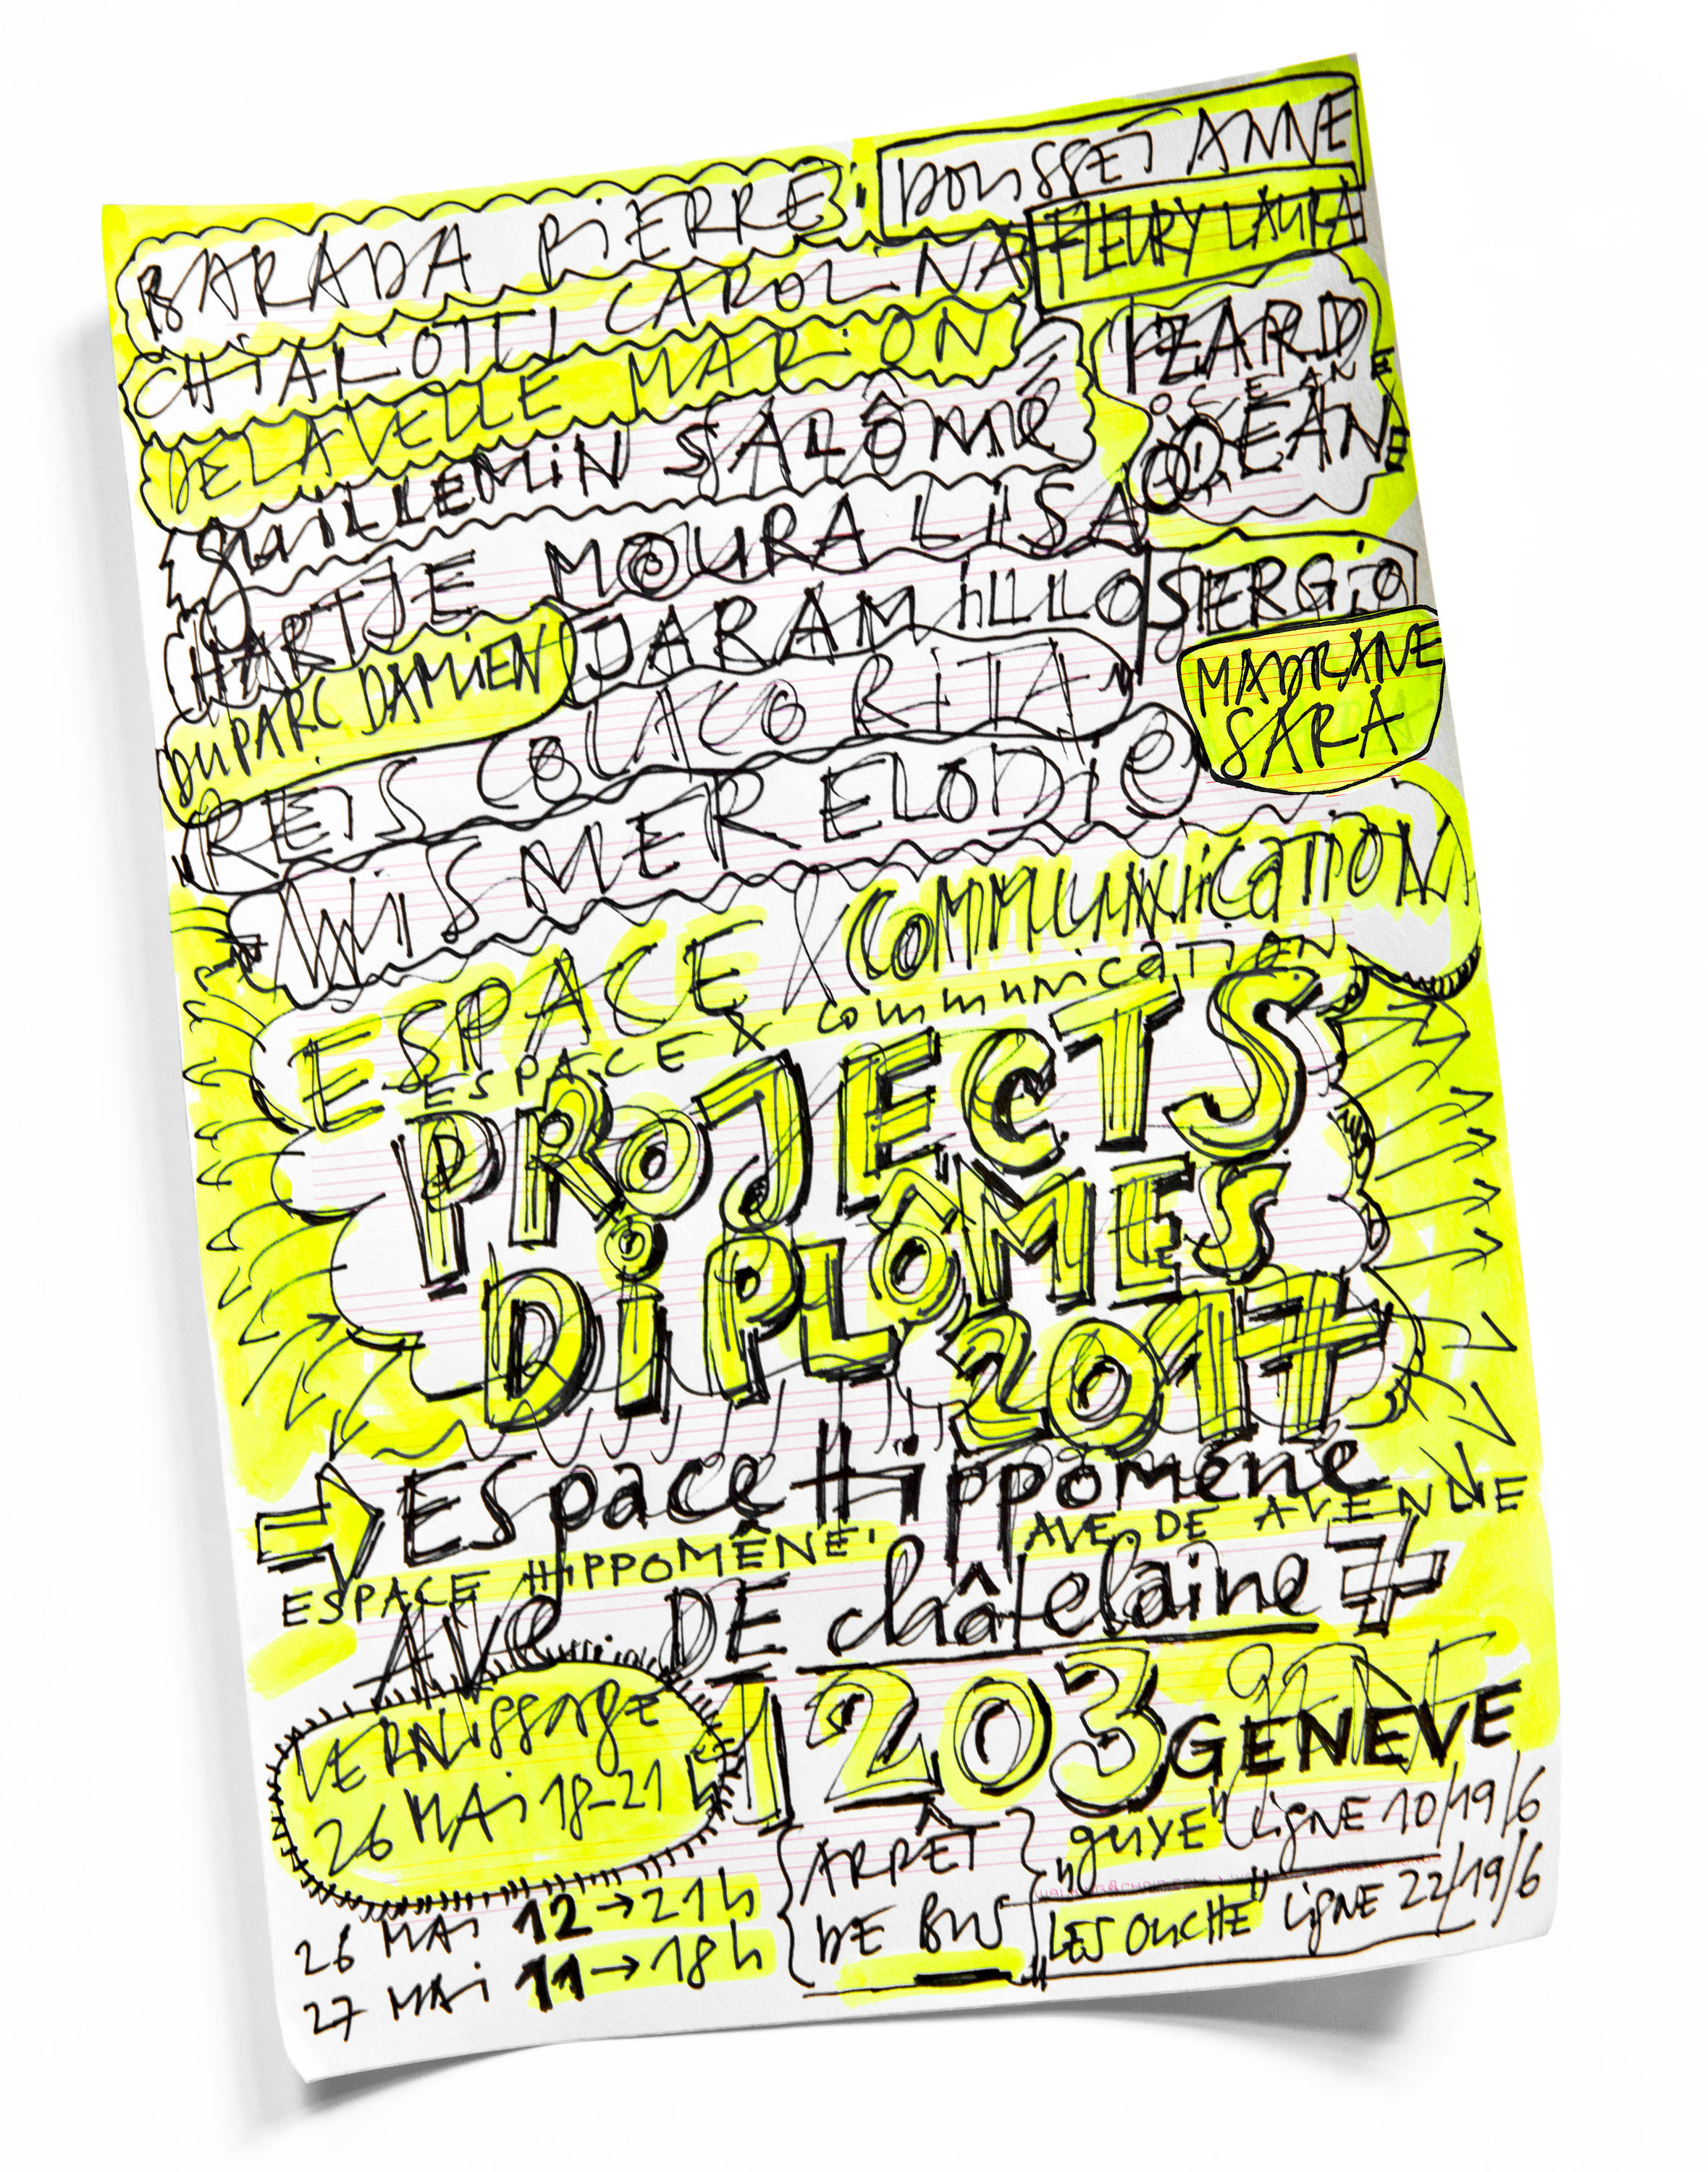 BARADA PiERRE
DOUSSET ANNE
CHiAROTTI CAROLiNA
FLEURY LAURA
DELAVELLE MARiON
IZARD
OCEANE
OCEANE
GUILLEMiN SALÔMÉ
HARTJE MOURA LISA
DUPARC DAMiEN
JARAMiLLLO SERGiO
REIS COLACO RITA
MADRANE
SARA
WiSMER ELODiE
ESPACE & COMMUNiCATiON
ESPACE & communication
PROJECTS
DiPLÔMES
2017
Espace Hippomène
ESPACE HiPPOMÊNE
AVE. DE AVENUE
AVE. DE châtelaine 7
1203 GENEVE
VERNissage
26 MAi 18-21
26 MAi 12→21h
27 MAi 11→18h
ARRÊT
DE BUS
"GUYE" LigNE 10/19/6
"LES OUCHE" LigNE 22/19/6